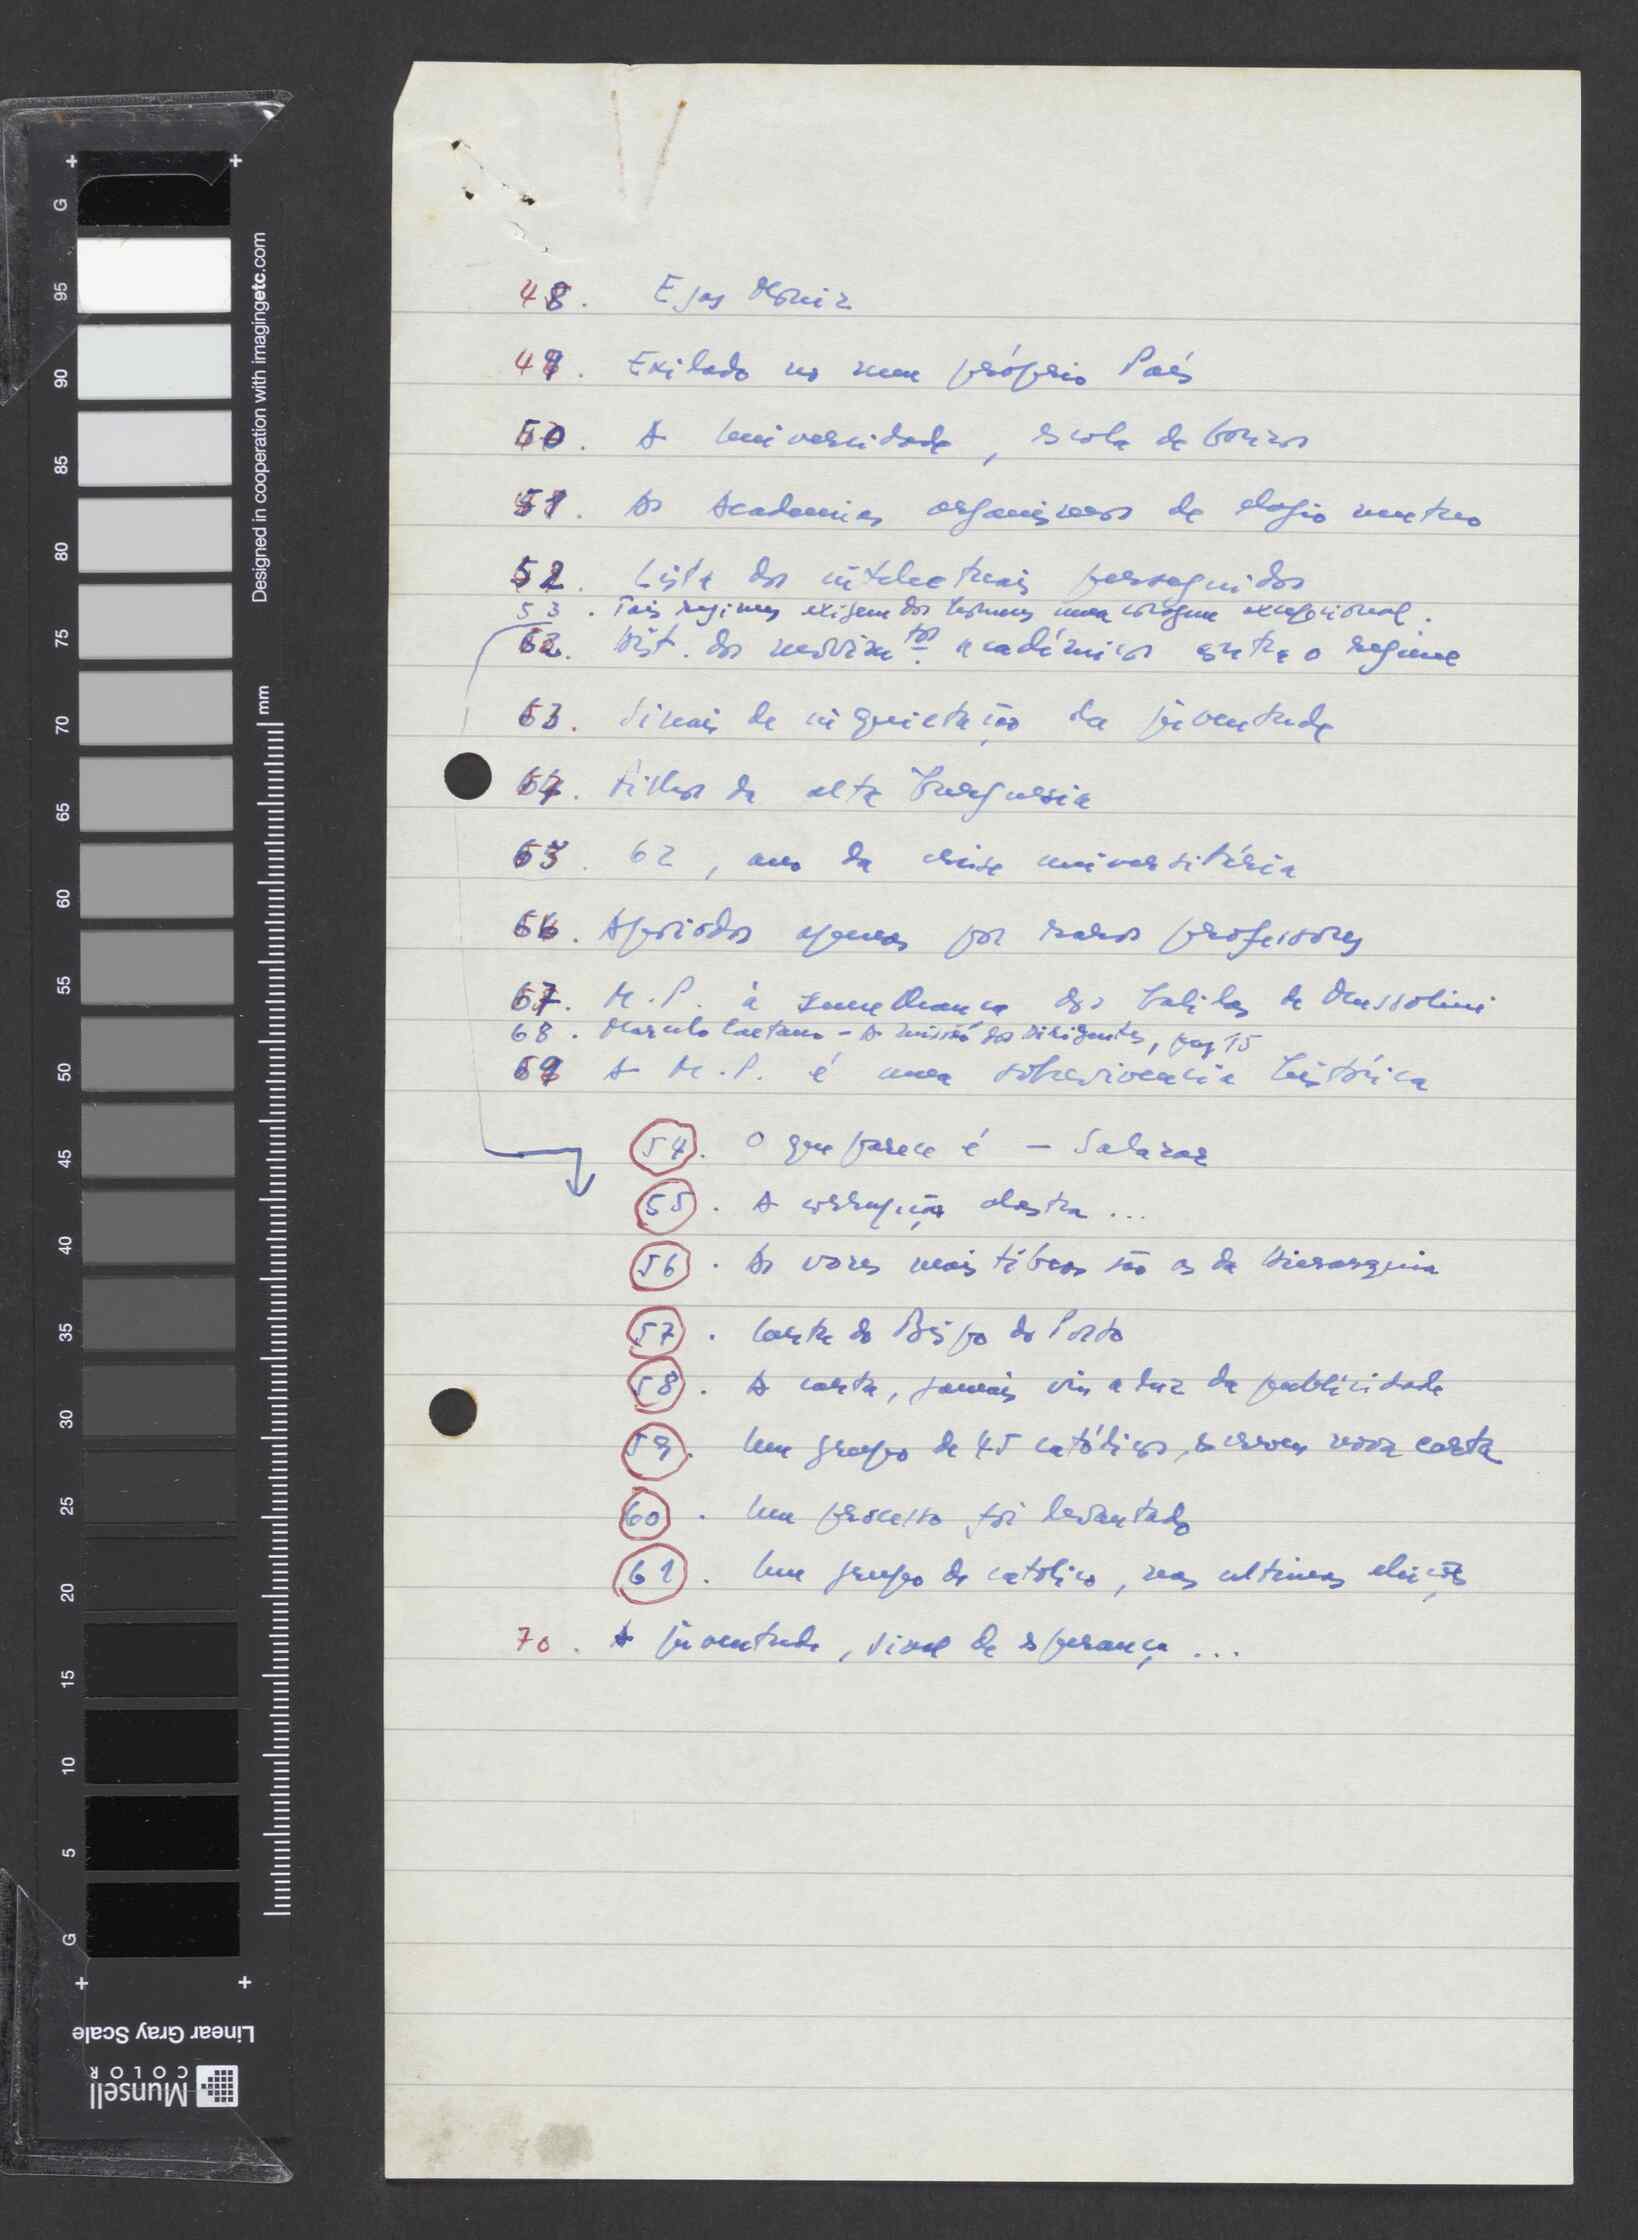 48. Egas Moniz
49. Exilado no seu próprio País
50. A Universidade, escola de bonzos
51. As Academias organismos de elogio mutuo
52. Lista dos intelectuais perseguidos
53. Tais regimes exigem dos homens uma coragem excepcional.
62. Hist. dos movimtos. académicos contra o regime
63. Sinais de inquietação da juventude
64. Filhos da alta burguesia
65. 62, ano da crise universitária
66. Apoiados apenas por raros professores
67. M.P. à semelhança dos balilas de Mussolini
68. Marcelo Caetano - A missão dos dirigentes, pag 15
69 A M.P. é uma sobrevivencia histórica
54. O que parece é - Salazar
55. A corrupção alastra ...
56. As vozes mais tíbias são as da Hierarquia
57. Carta do Bispo do Porto
58. A carta, jamais viu a luz da publicidade
59. Um grupo de 45 católicos, escreveu nova carta
60. Um processo foi levantado
61. Um grupo de católico, nas ultimas eleições
70. A juventude, sinal de esperança ...
Designed in cooperation with imagingetc.com
mm
G 95 90 85 80 75 70 65 60 55 50 45 40 35 30 25 20 15 10 5 G
Linear Gray Scale
Munsell
COLOR